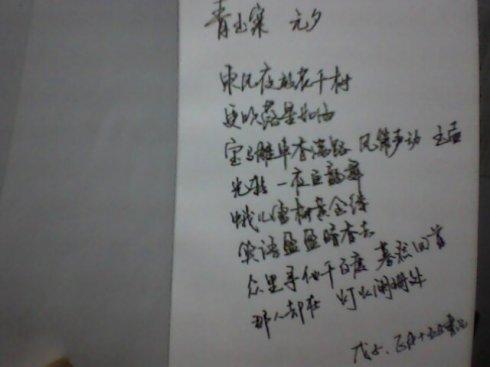 青玉案 元夕
东风夜放花千树
更吹落星如雨
宝马雕车香满路 凤箫声动 玉壶
光转 一夜鱼龙舞
蛾儿雪柳黄金缕
笑语盈盈暗香去
众里寻他千百度 蓦然回首
那人却在 灯火阑珊处
戊子、正月十五